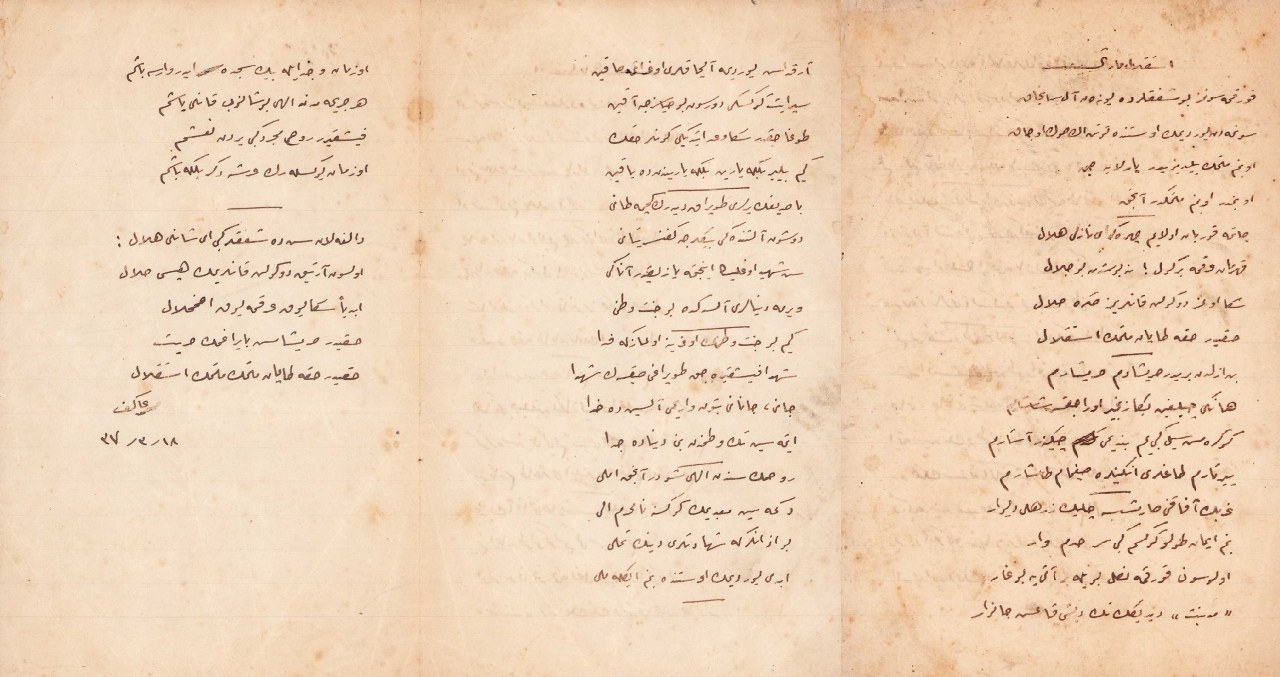 استقلال مارشی
قورقمه سونمز بو شفقلرده یوزن آل سانجاق
سونمه‌دن یوردیمك اوستنده توتن اك صوك اوجاق
او بنم ملتمك ییلدیزیدر پارلایه‌جق
او بنمدر او بنم ملتمكدر آنجق
چاتمه قوربان اولایم چهره‌كی ای نازلی هلال
قهرمان عرقمه بر گول! نه بو شدت بو جلال
سكا اولمز دوكولن قانلریمز صكره حلال
حقیدر حقه طاپان ملتمك استقلال
بن ازلدن بریدر حر یشادم حر یشارم
هانكی چیلغین بكا زنجیر اوراجقمش شاشارم
كوكره‌مش سیل كبی‌یم بندیمی چیكنر آشارم
ییرتارم طاغلری انكینلره صیغمام طاشارم
غربك آفاقنی صارمشسه چلیك زرهلی دیوار
بنم ایمان طولو كوكسم كبی سرحدم وار
اولوسون قورقمه نصل بویله بر ایمانی بوغار
«مدنیت» دیدیكك تك دیشی قالمش جاناوار
آرقداش یوردیمه آلچاقلری اوغراتمه صاقین
سپر ایت كوكسكی دورسون بو حیاسزجه آقین
طوغاجقدر سكا وعد ایتدیكی كونلر حقك
كیم بیلیر بلكه یارین بلكه یاریندن ده یاقین
باصدیغك یرلری طوپراق دییه‌رك كچمه طانی
دوشون آلتنده‌كی بیكلرجه كفنسز یاتانی
سن شهید اوغلیسك اینجتمه یازیقدر آتاكی
ویرمه دنیالری آلسه‌ك ده بو جنت وطنی
كیم بو جنت وطنك اوغرینه اولماز كه فدا
شهدا فیشقیره‌جق طوپراغی صیقسه‌ك شهدا
جانی، جانانی بتون واریمی آلسین ده خدا
ایتمه‌سین تك وطنمدن بنی دنیاده جدا
روحمك سندن الهی شودر آنجق املی
دكمه‌سین معبدیمك كوكسنه نامحرم الی
بو اذانلر كه شهادتلری دینك تملی
ابدی یوردیمك اوستنده بنم ایكله‌ملی
او زمان وجد ایله بیك سجده ایدر وارسه طاشم
هر جریحه‌مدن الهی بوشانوب قانلی یاشم
فیشقیرر روح مجرد كبی یردن نعشم
او زمان یوكسله‌رك عرشه دكر بلكه باشم
دالغه‌لان سن ده شفقلر كبی ای شانلی هلال:
اولسون آرتیق دوكولن قانلریمك هپسی حلال
ابدیاً سكا یوق عرقمه یوق اضمحلال
حقیدر حر یشامش بایراغمك حریت
حقیدر حقه طاپان ملتمك استقلال
عاكف
١٨ / ٣ / ٣٧